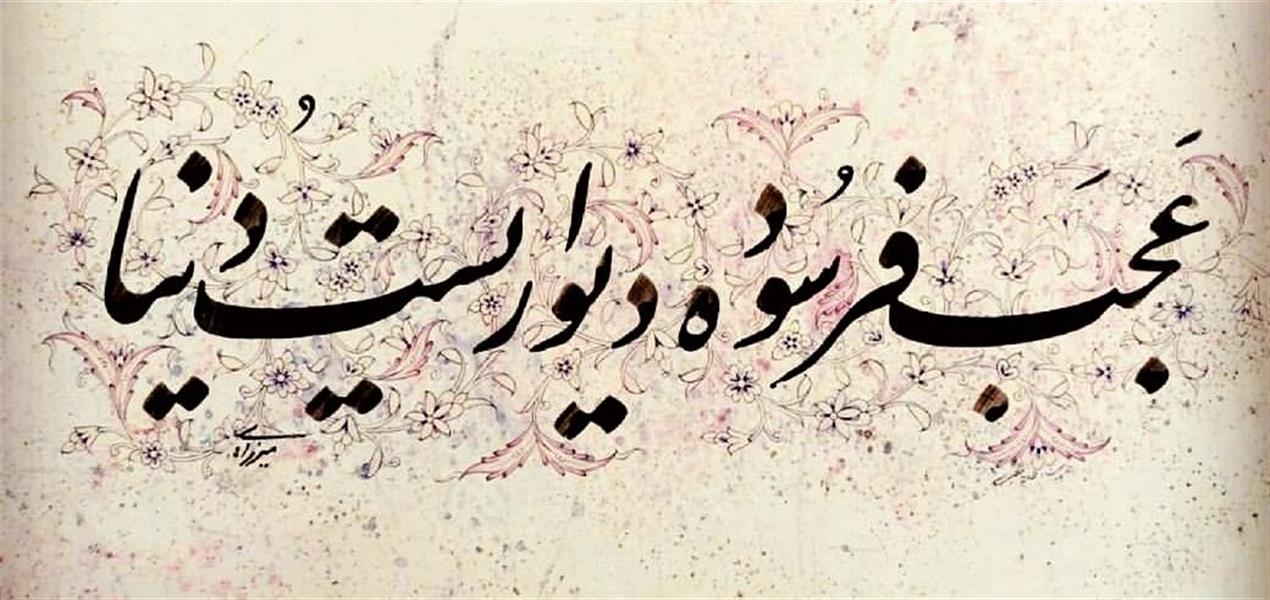 عَجَب فرسُوده دیواریست دُنیا
میرزائی